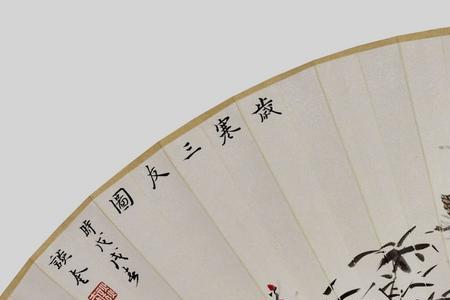 歲寒三友圖
時戊戌春